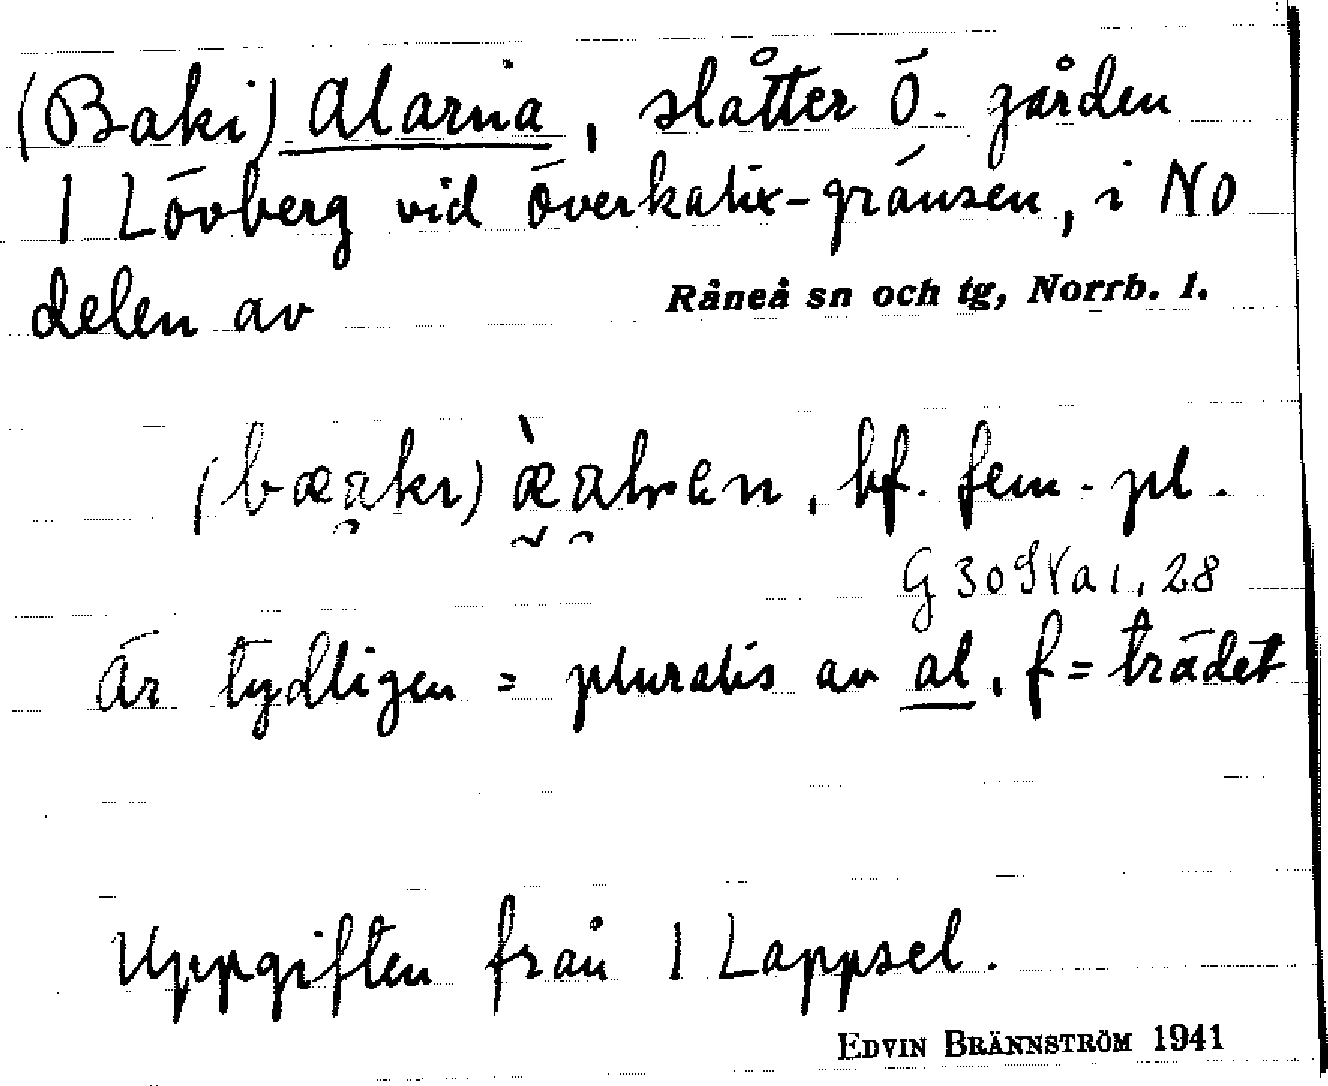 (Baki) Alarna, slåtter Ö. gården
1 Lövberg vid Överkalix-gränsen, i NO
delen av Råneå sn och tg, Norrb. l.
bf. fem. pl.
G 30
28
Är tydligen = pluralis av al, f = trädet
Uppgiften från 1 Lappsel.
EDVIN BRÄNNSTRÖM 1941